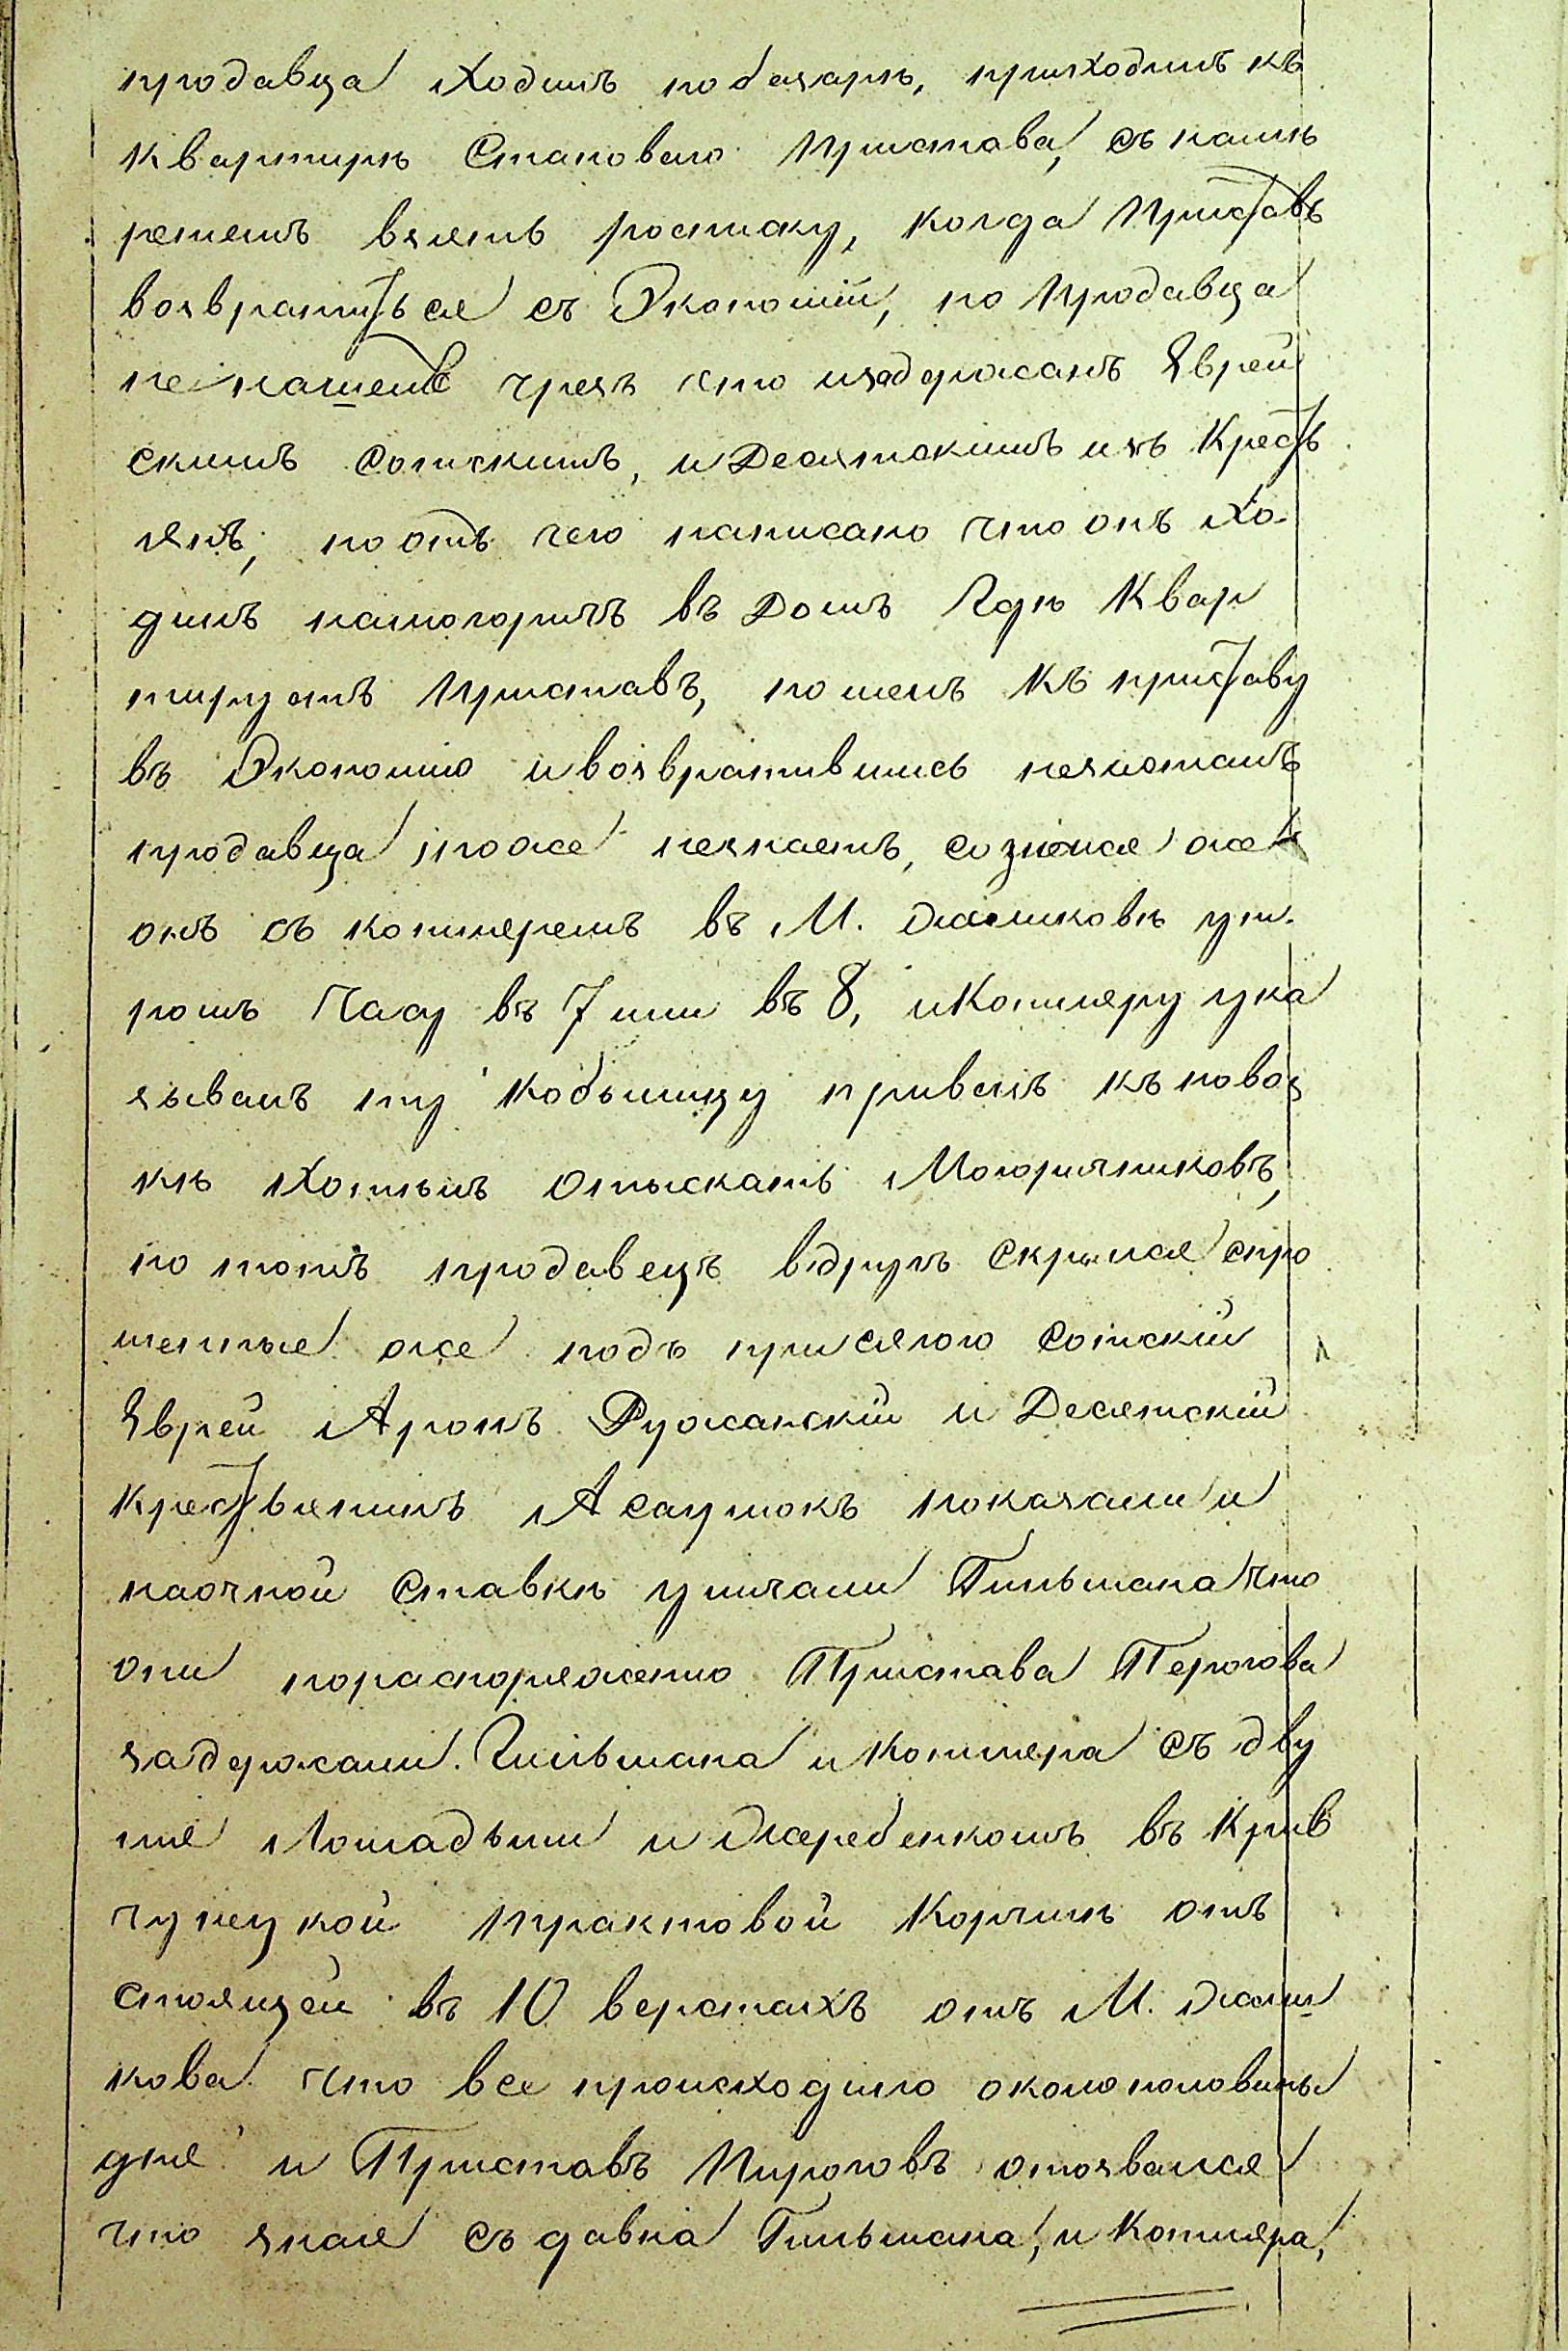 продавца ходилъ побазарѣ, приходилъ къ
квартирѣ Становаго Пристава, съ намѣ
реніемъ взять росписку, когда Приставъ
возвратиться съ Экономіи, но Продавца
не нашелъ чрезъ что и задержанъ Еврей
скимъ Сотскимъ, и Десятскимъ изъ Кресть
янъ, по отъ чего написано что онъ хо-
дилъ намогоричъ въ Домъ Гдѣ Квар
тируетъ Приставъ, пошелъ къ приставу
въ Экономію и возвратившись незасталъ
продавца тоже незнаетъ, сознался же
онъ съ котляремъ въ М. Жашковѣ ут-
ромъ Часу въ 7 или въ 8, и Котляру ука
зывалъ ту кобылицу привелъ къ повоз
кѣ Хотѣлъ отыскать Могоричниковъ,
но тотъ продавецъ вдругъ скрылся спро
шенные же подъ присягою Сотскій
Еврей Аронъ Ружанскій и Десятскій
Крестьянинъ Асаулюкъ показали и
наочной Ставкѣ уличали Гильмана что
они пораспоряженію Пристава Перогова
задержали Гильмана и Котляра съ дву
мя Лошадьми и Жеребенкомъ въ Крив
чунецкой трактовой Корчмѣ отъ
стоящей въ 10 верстахъ отъ М. Жаш
кова что все происходило около половины
дня и Приставъ Пироговъ отозвался
что зная съ давна Гильмана, и Котляра,